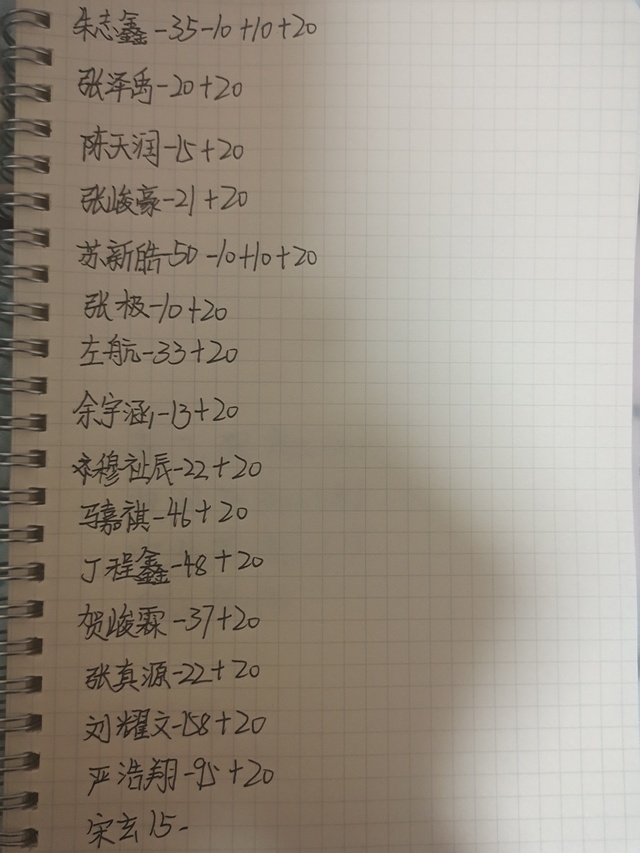 朱志鑫-35-10+10+20
张泽禹-20+20
陈天润-15+20
张峻豪-21+20
苏新皓-50-10+10+20
张极-10+20
左航-33+20
余宇涵-13+20
穆祉辰-22+20
马嘉祺-46+20
丁程鑫-48+20
贺峻霖-37+20
张真源-22+20
刘耀文-158+20
严浩翔-95+20
宋玄15-